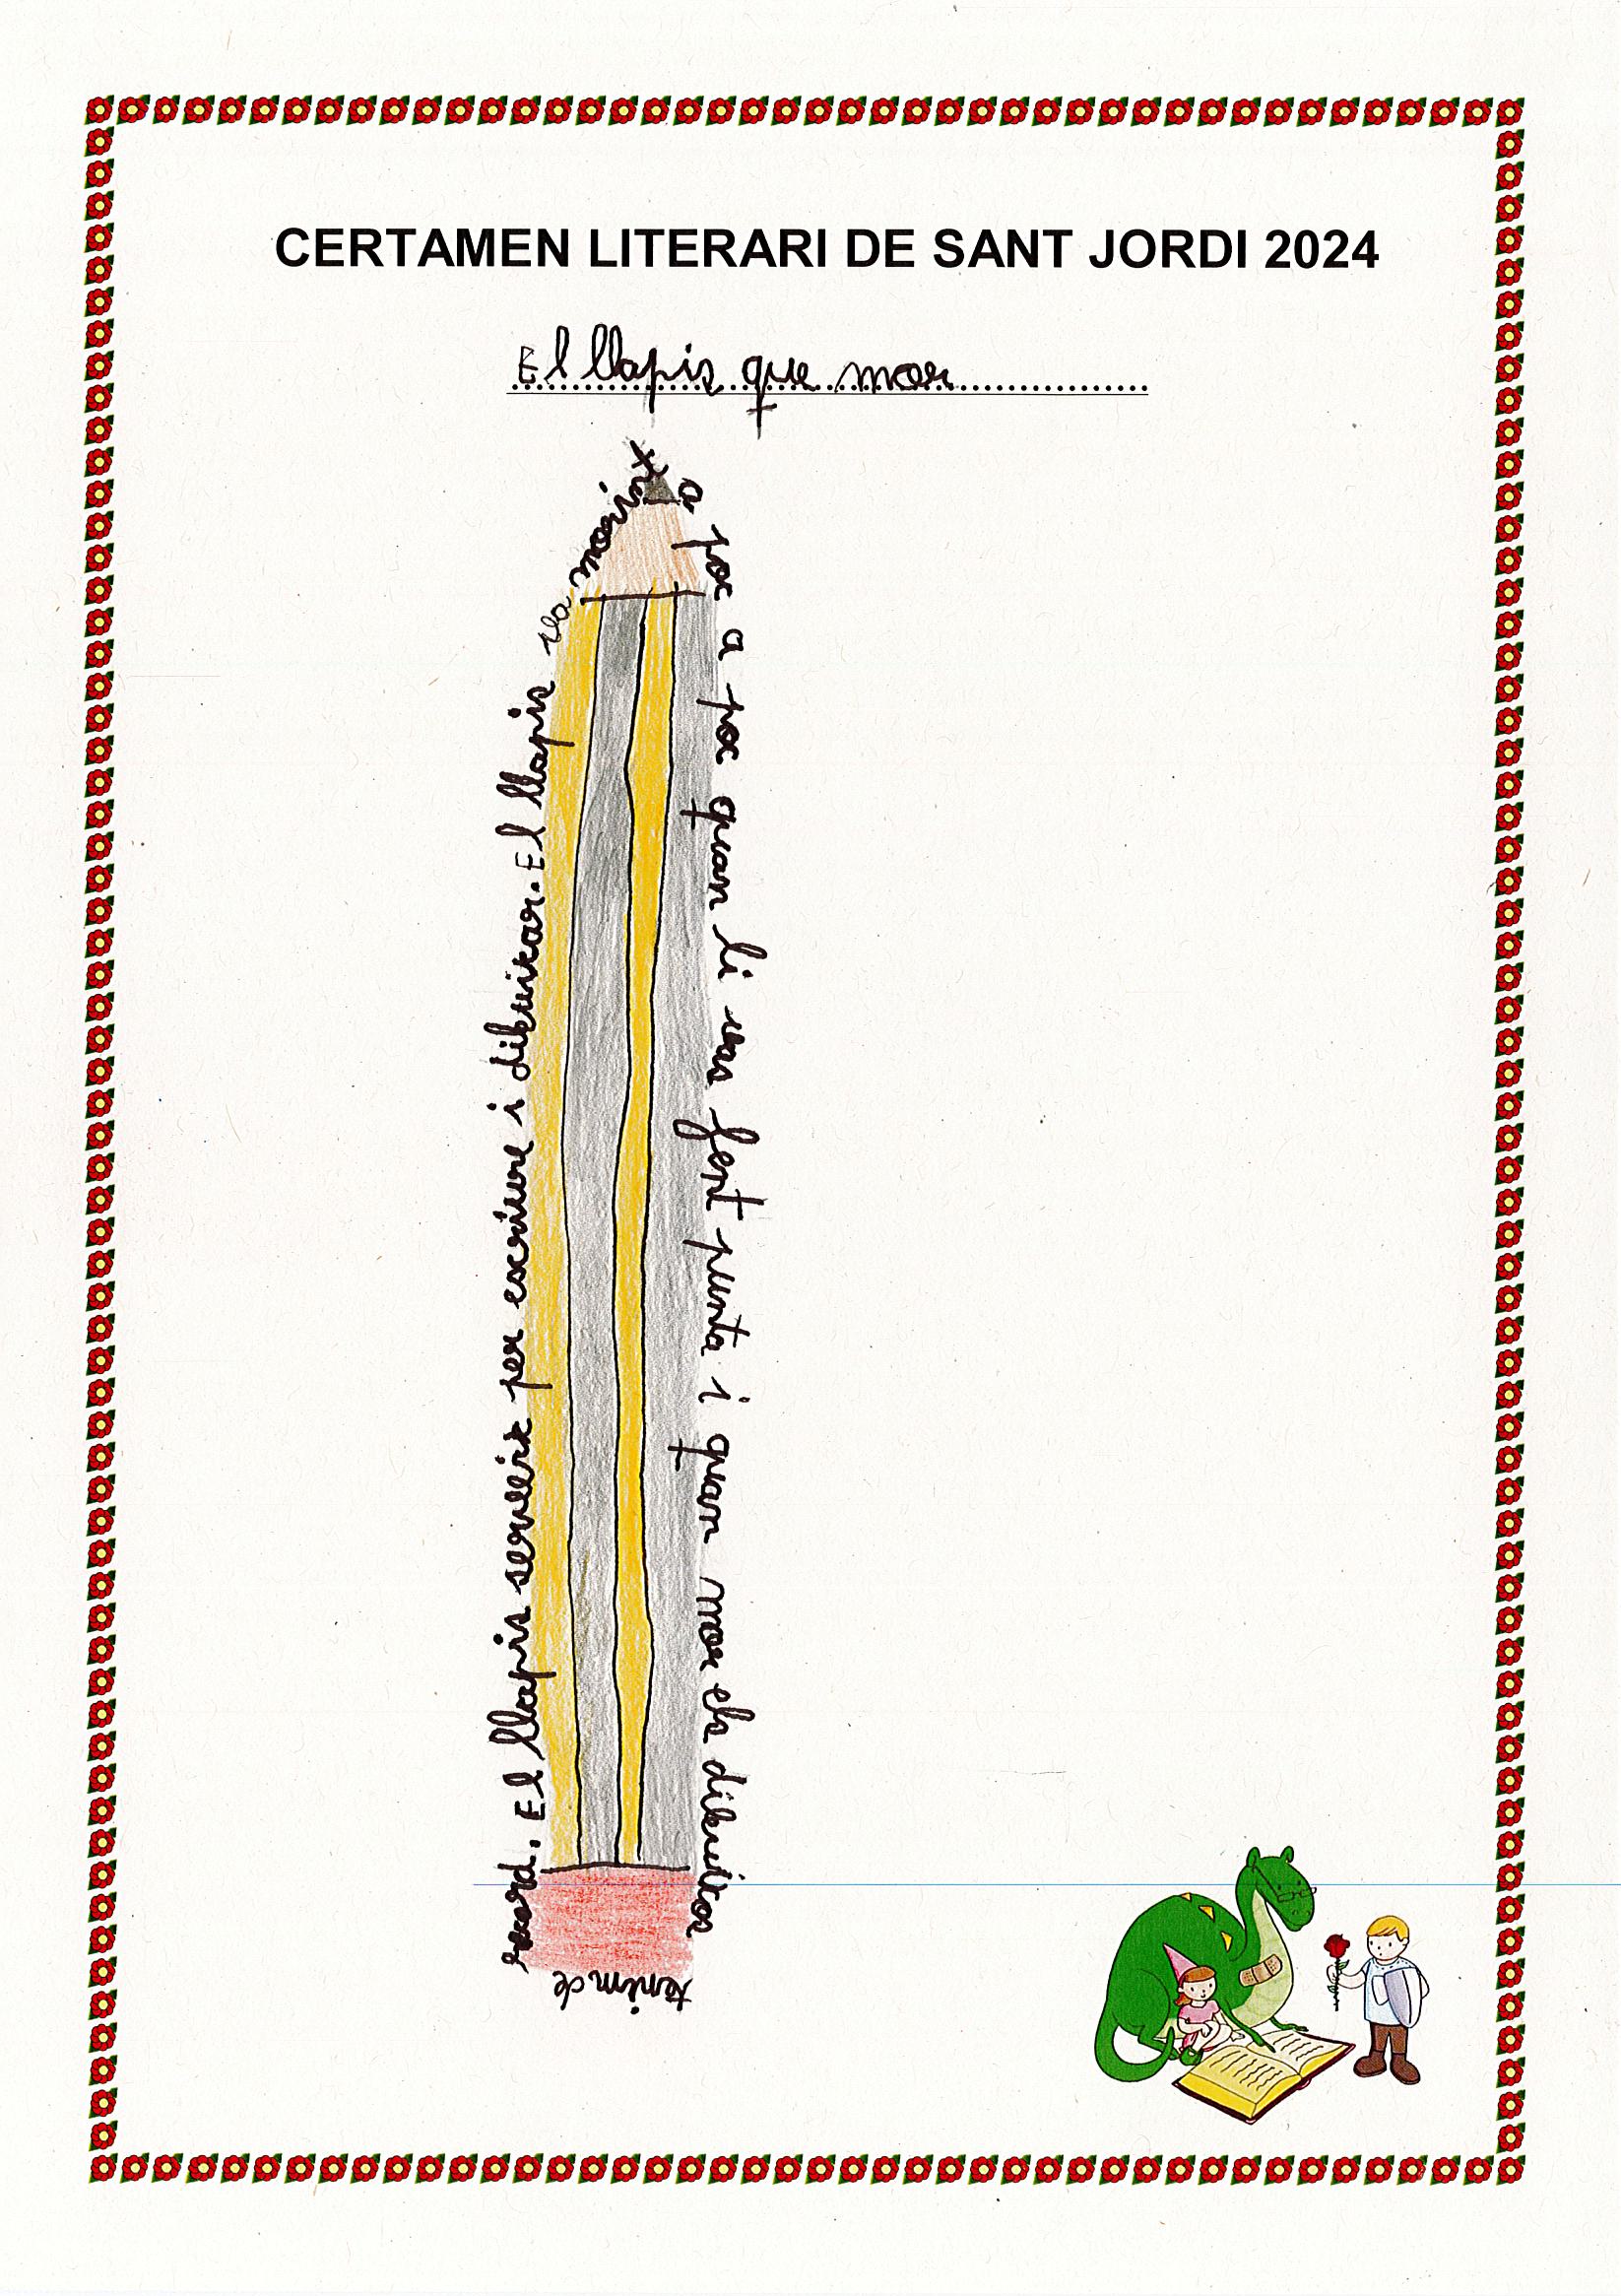 CERTAMEN LITERARI DE SANT JORDI 2024
El llapis que mor
El llapis serveix per escriure i dibuixar. El llapis va morint
a poc a poc quan li vas fent punta i quan mor els dibuixos
tenim de
record.